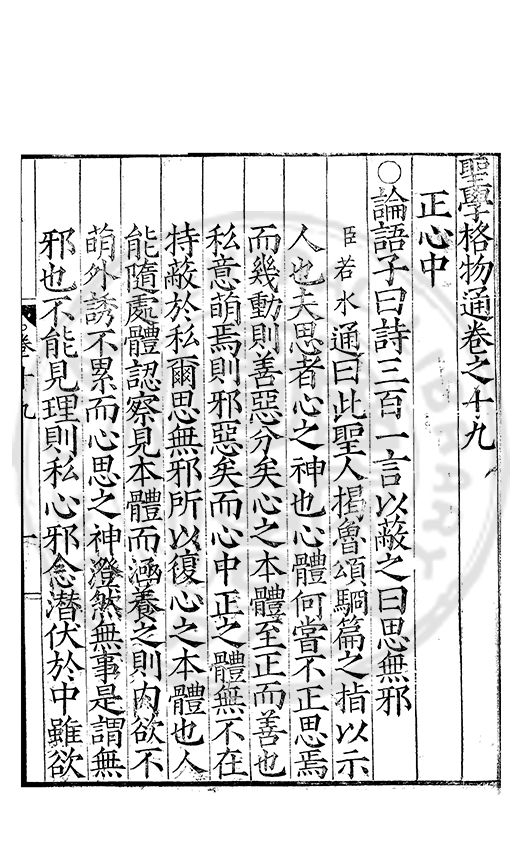 聖學格物通卷之十九
正心中
○論語子曰詩三百一言以蔽之曰思無邪
臣若水通曰此聖人揭魯頌駉篇之指以示
人也夫思者心之神也心體何嘗不正思焉
而幾動則善惡分矣心之本體至正而善也
私意萌焉則邪惡矣而心中正之體無不在
特蔽於私爾思無邪所以復心之本體也人
能隨處體認察見本體而涵養之則内欲不
萌外誘不累而心思之神澄然無事是謂無
邪也不能見理則私心邪念潛伏於中雖欲
卷十九
一